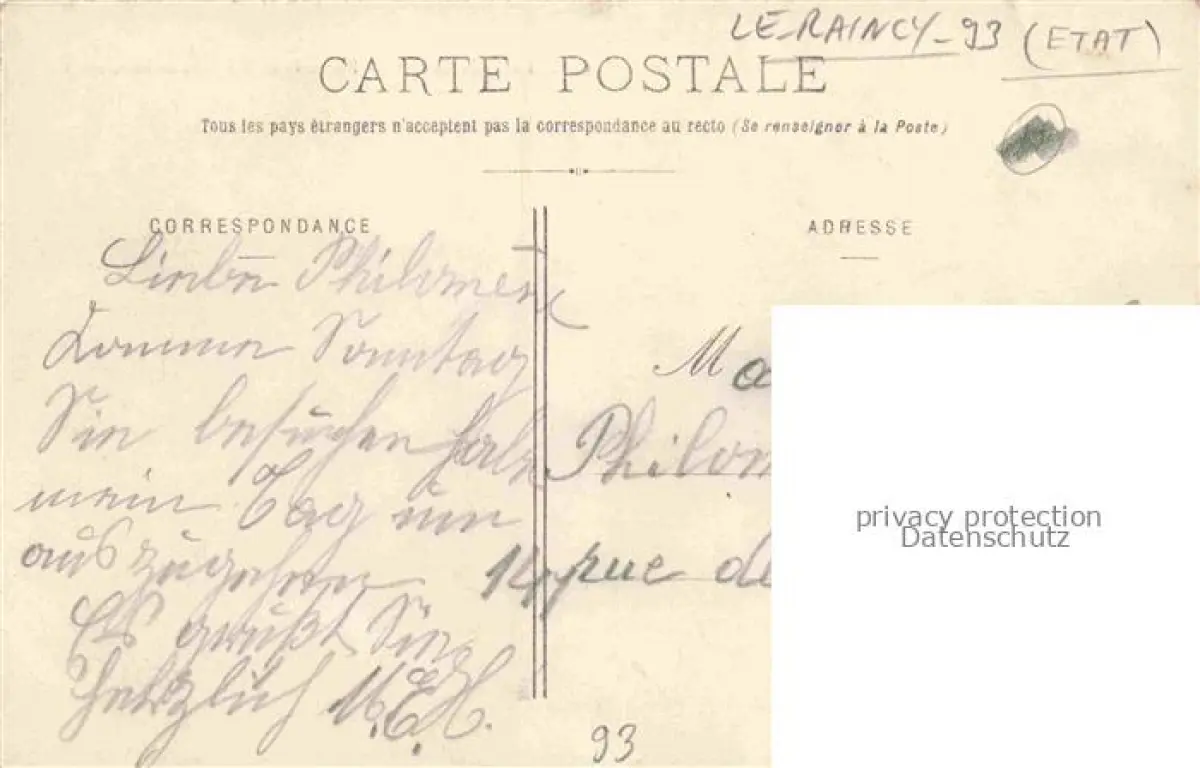 LE RAINCY - 93 (ETAT)
CARTE POSTALE
Tous les pays étrangers n'acceptent pas la correspondance au recto (Se renseigner à la Poste)
CORRESPONDANCE
Liebe Philomene
Komme Sonntag
Sie besuchen habe
mein Tag um
auszugehen
Es grüßt Sie
herzlich M.E.H.
ADRESSE
Ma
Philom
14 rue de
privacy protection
Datenschutz
93